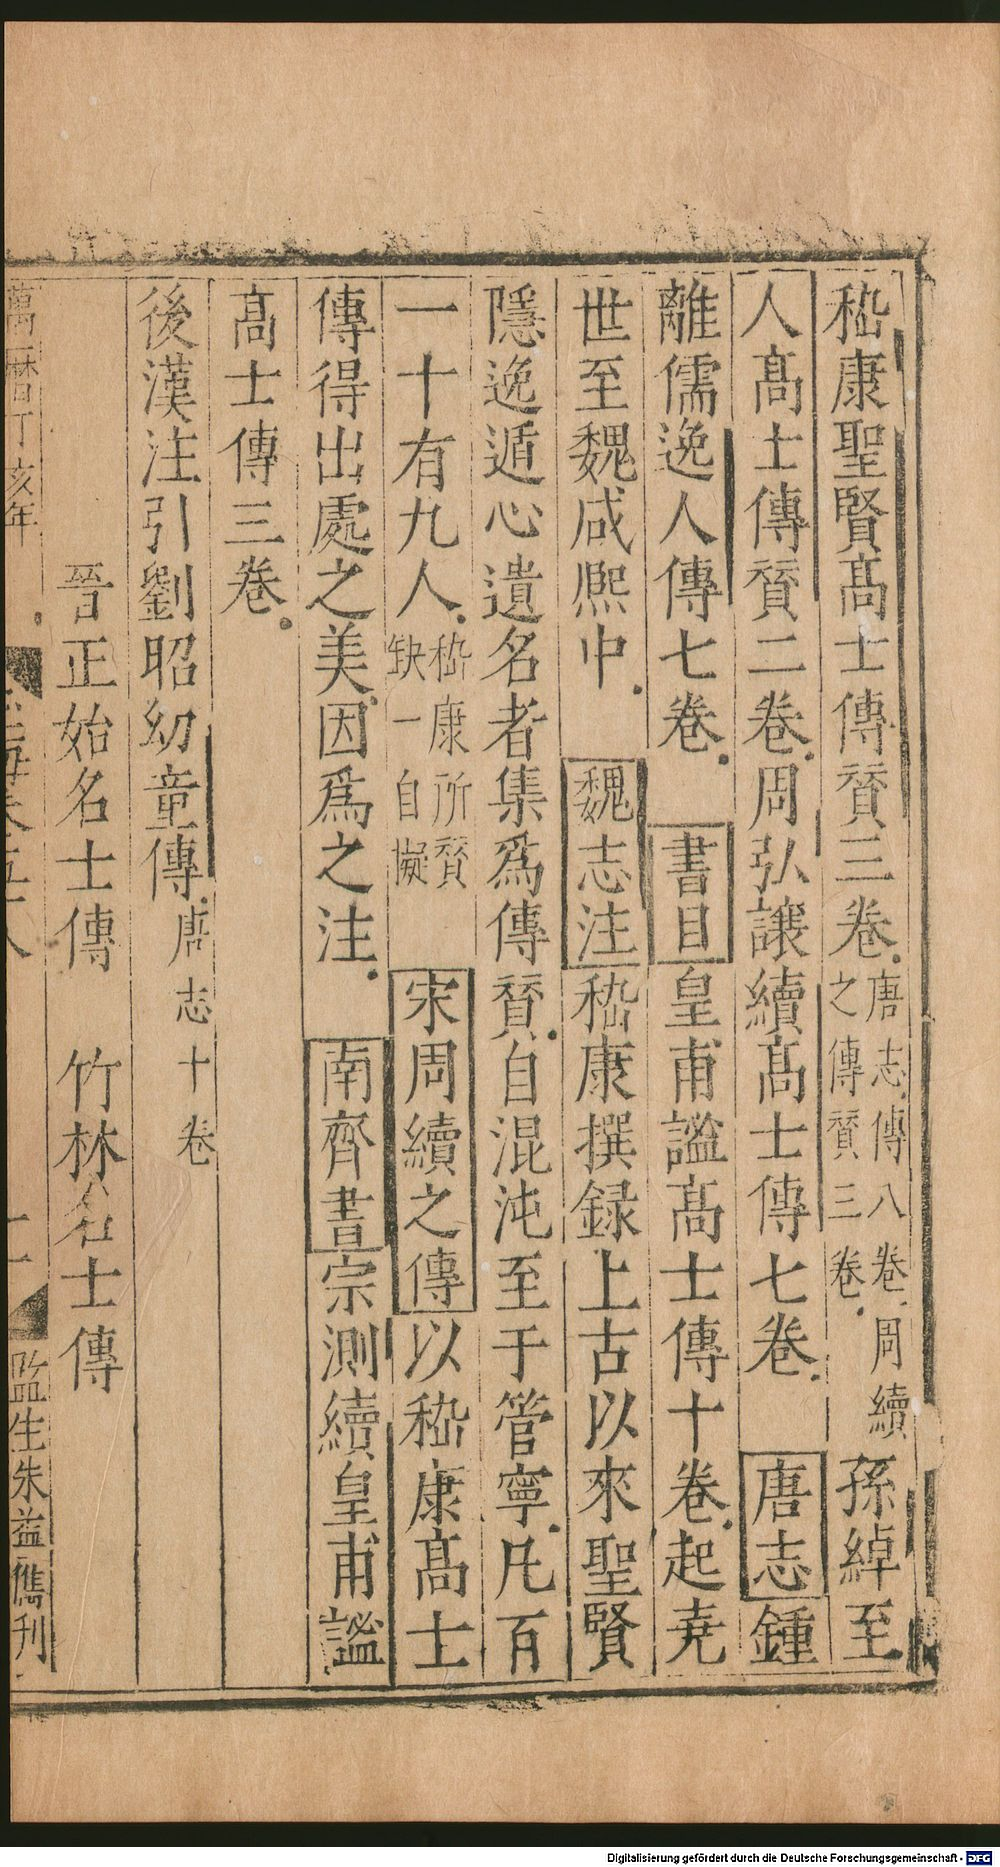 嵇康聖賢髙士傳賛三卷唐志傳八卷周續之傳賛三卷孫綽至
人髙士傳賛二卷周弘讓續髙士傳七卷唐志鍾
離儒逸人傳七卷書目皇甫謐髙士傳十卷起堯
世至魏咸熈中魏志注嵇康撰録上古以來聖賢
隱逸遁心遺名者集爲傳賛自混沌至于管寧凡百
一十有九人嵇康所賛缺一自擬宋周續之傳以嵇康髙士
傳得出處之美因爲之注南齊書宗測續皇甫謐
髙士傳三卷
後漢注引劉昭幼童傳唐志十卷
晉正始名士傳 竹林名士傳
萬暦丁亥年 玉海卷五十八 十一 監生朱益儁刋
Digitalisierung gefördert durch die Deutsche Forschungsgemeinschaft - DFG